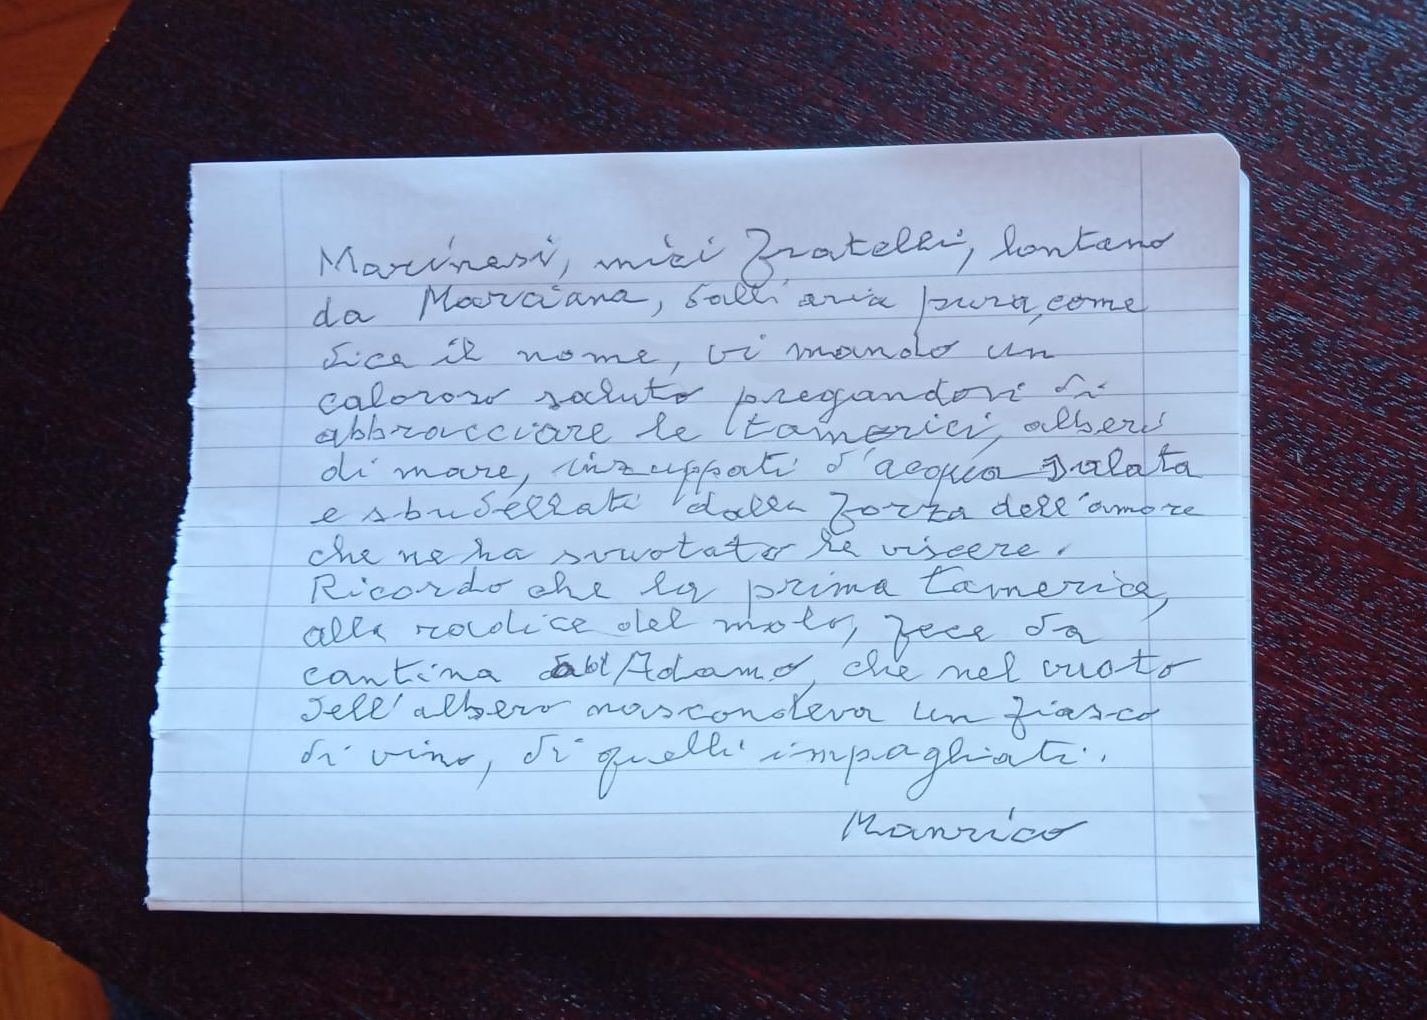 Marinesi, miei fratelli, lontano
da Marciana, dall'aria pura, come
dice il nome, vi mando un
caloroso saluto pregandovi di
abbracciare le tamerici, alberi
di mare, inzuppati d'acqua salata
e sbudellati dalla forza dell'amore
che ne ha svuotato le viscere.
Ricordo che la prima tamerice,
alla radice del molo, fece da
cantina ad Adamo, che nel vuoto
dell'albero nascondeva un fiasco
di vino, di quelli impagliati.
Manrico